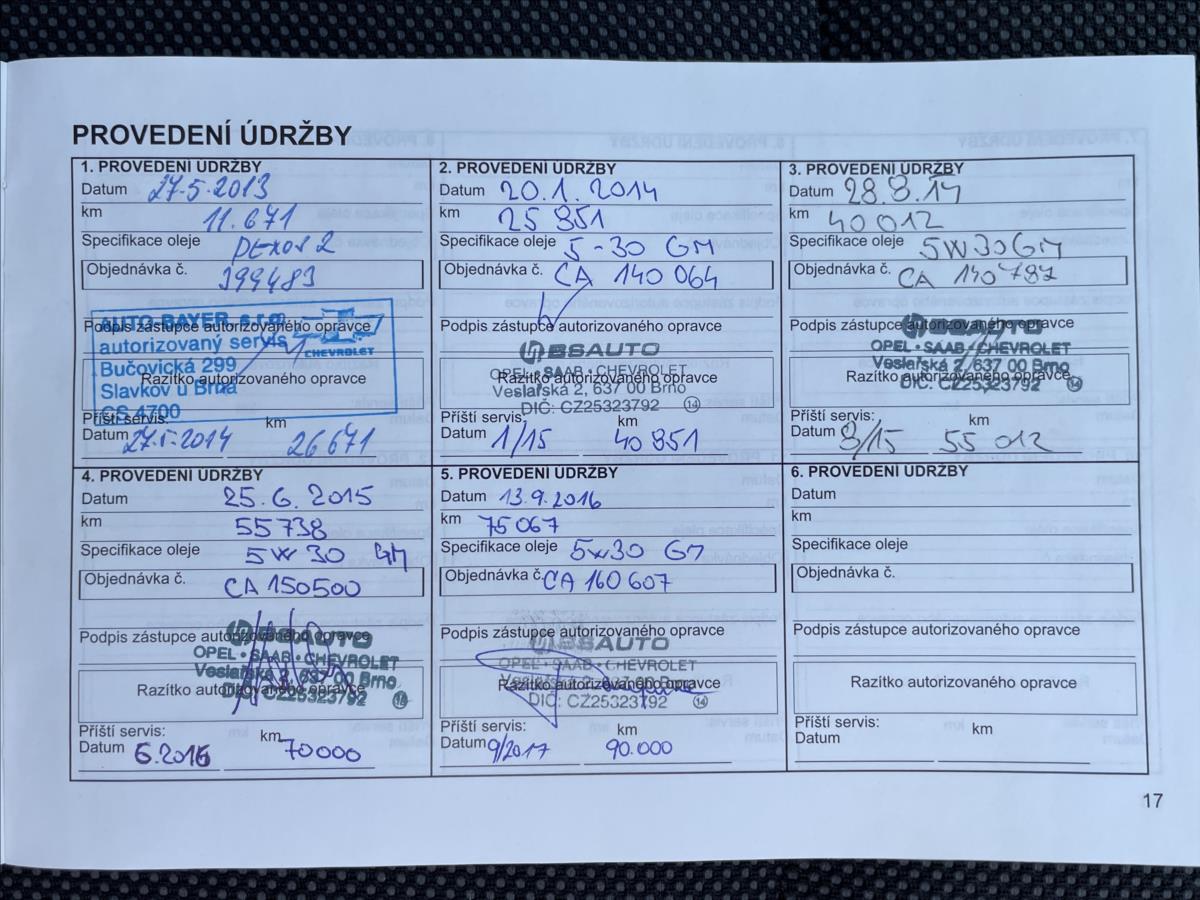 PROVEDENÍ ÚDRŽBY
1. PROVEDENÍ ÚDRŽBY
Datum 27.5.2013
km 11.671
Specifikace oleje DEXOS 2
Objednávka č. 399483
AUTO BAYER s.r.o.
Podpis zástupce autorizovaného opravce
autorizovaný servis
CHEVROLET
Bučovická 299
Razítko autorizovaného opravce
Slavkov u Brna
CS 4700
Příští servis:
Datum 27.5.2014 km 26671
2. PROVEDENÍ ÚDRŽBY
Datum 20.1.2014
km 25 851
Specifikace oleje 5-30 GM
Objednávka č. CA 140 064
Podpis zástupce autorizovaného opravce
BSAUTO
OPEL • SAAB • CHEVROLET
Razítko autorizovaného opravce
Veslařská 2, 637 00 Brno
DIČ: CZ25323792 14
Příští servis:
Datum 1/15 km 40 851
3. PROVEDENÍ ÚDRŽBY
Datum 28.8.14
km 40012
Specifikace oleje 5W30GM
Objednávka č. CA 140787
Podpis zástupce autorizovaného opravce
BSAUTO
OPEL • SAAB • CHEVROLET
Veslařská 2, 637 00 Brno
Razítko autorizovaného opravce
DIČ: CZ25323792 14
Příští servis:
Datum 8/15 km 55 012
4. PROVEDENÍ ÚDRŽBY
Datum 25.6.2015
km 55738
Specifikace oleje 5W30 GM
Objednávka č. CA 150500
Podpis zástupce autorizovaného opravce
BSAUTO
OPEL • SAAB • CHEVROLET
Veslařská 2, 637 00 Brno
Razítko autorizovaného opravce
DIČ: CZ25323792
Příští servis:
Datum 6.2016 km 70000
5. PROVEDENÍ ÚDRŽBY
Datum 13.9.2016
km 75067
Specifikace oleje 5w30 GM
Objednávka č. CA 160607
Podpis zástupce autorizovaného opravce
BSAUTO
OPEL • SAAB • CHEVROLET
Veslařská 2, 637 00 Brno
Razítko autorizovaného opravce
DIČ: CZ25323792 14
Příští servis:
Datum 9/2017 km 90.000
6. PROVEDENÍ ÚDRŽBY
Datum
km
Specifikace oleje
Objednávka č.
Podpis zástupce autorizovaného opravce
Razítko autorizovaného opravce
Příští servis:
Datum km
17